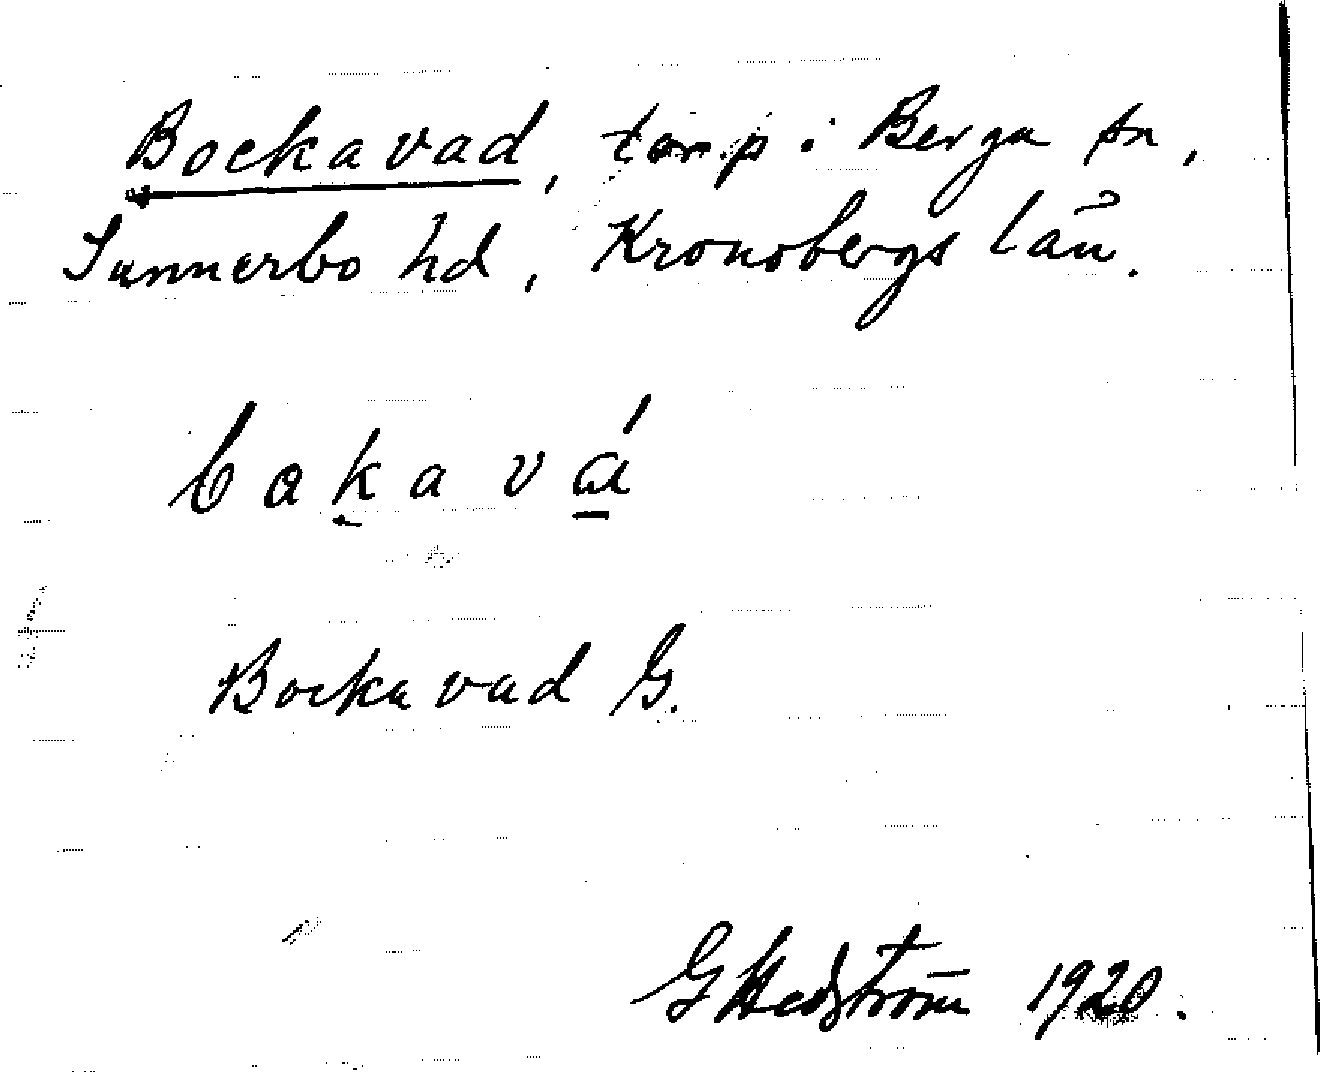 Bockavad, torp i Berga sn,
Sunnerbo hd, Kronobergs län.
bakavá
Bockavad G.
G Hedström 1920.